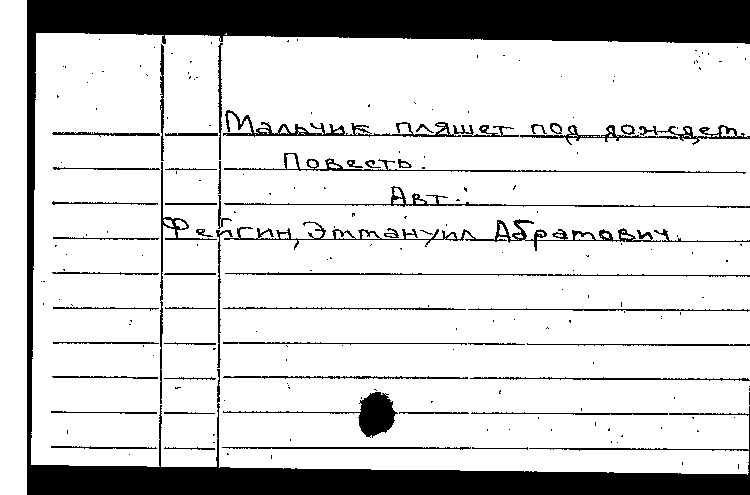 Мальчик пляшет под дождем.
Повесть.
Авт.:
Фейгин, Эммануил Абрамович.